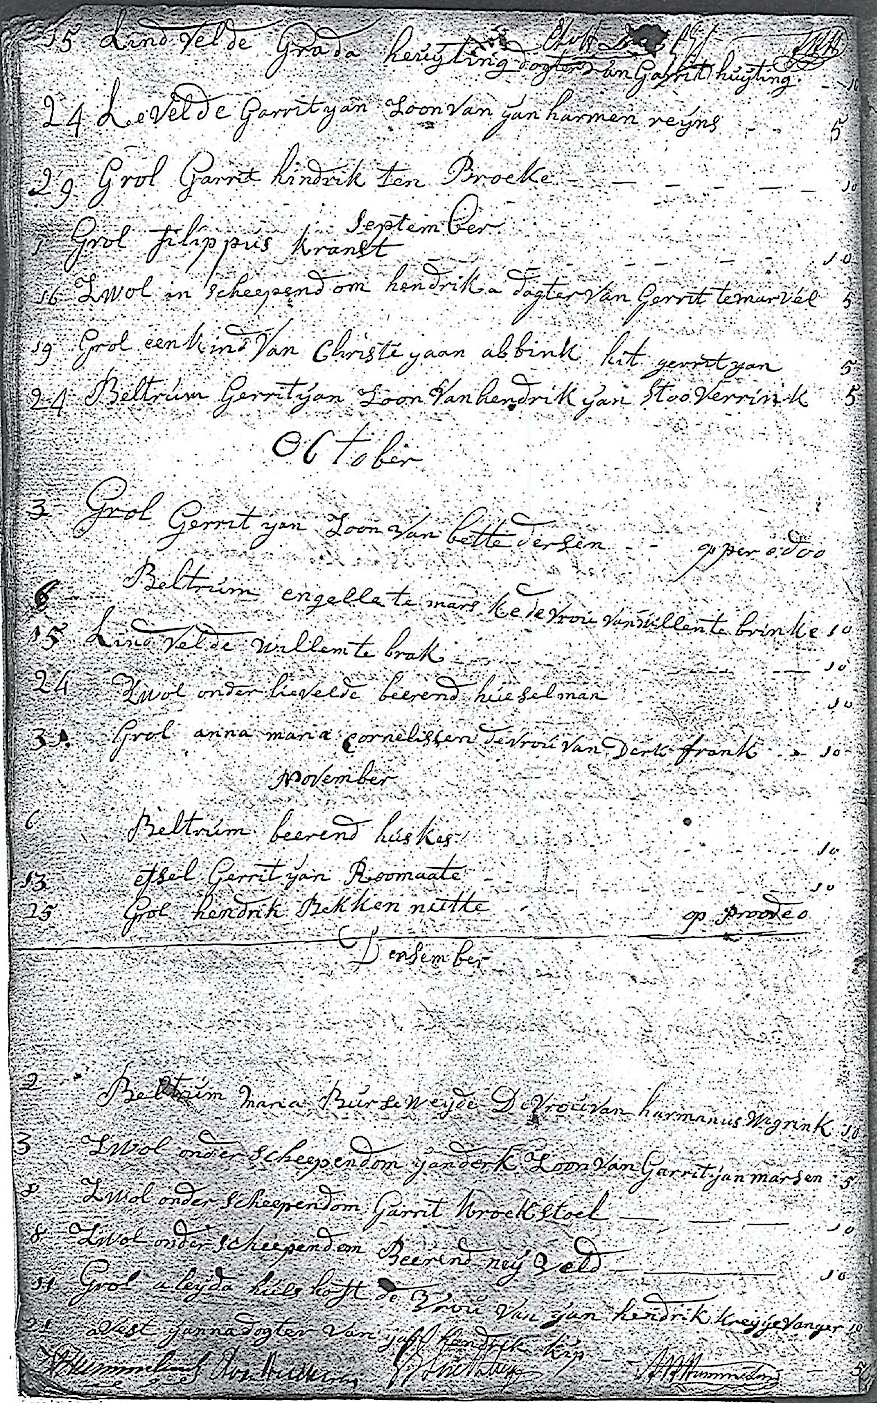 15 Lindvelde Grada heuijting dogter van Garrit huijting 10
24 Levelde Garrit yan Zoon van yan harmen reijns 5
29 Grol Garrit hindrik ten Broeke 10
September
1 Grol filippus kranst 10
16 Zwol in scheependom hendrik a dogter van Gerrit temarvel 5
19 Grol een kind Van Christe yaan abbink hit gerrit yan 5
24 Beltrum Gerrit yan Zoon Van hendrik yan Stooverrink 5
October
3 Grol Gerrit yan Zoon van bette dersen
6 Beltrum engelle te mars ke de vrou van willen te brinke 10
15 Lindvelde willem te brak 10
24 Zwol onder lievelde beerend hüeselman 10
31 Grol anna maria Cornelissen de vrou van Derk frank 10
November
6 Beltrum beerend huskes 10
13 efsel Gerrit yan Roomaate 10
25 Grol hendrik Bekken nutte op proodeo
Densember
2 Beltrum maria Burse weyde De Vrou van harmanus wigrink 10
3 Zwol onder scheependom yan derk Zoon van Garrit yan marsen 5
8 Zwol onder scheependom Garrit kroekstoel 10
8 Zwol onder scheependom Beerend neij Veld 10
11 Grol aleyda hulshoff de Vrou van yan hendrik kreyjevanger 10
21 avest yanna dogter van hendrik kip 5